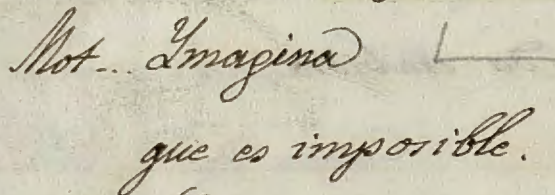 Mot... Ymagina
que es imposible.